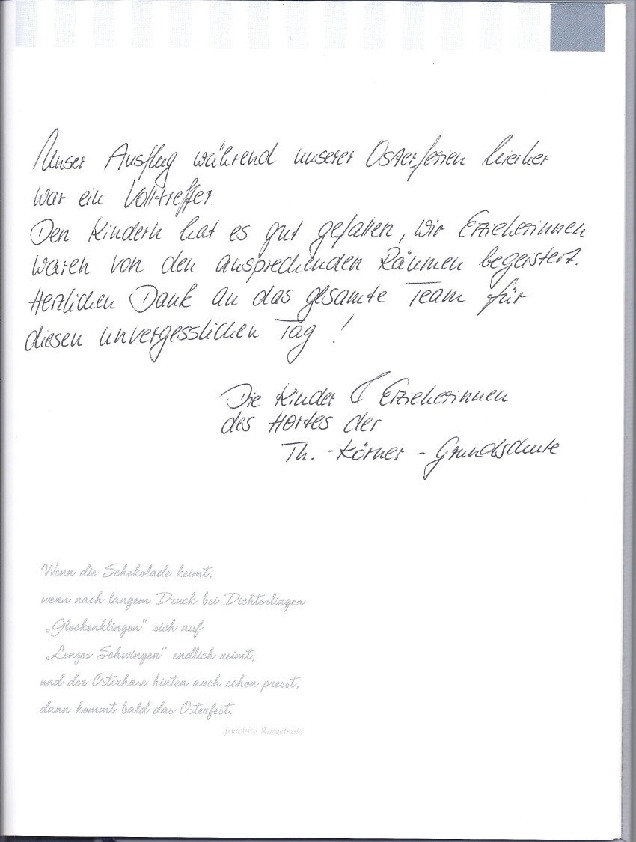 Unser Ausflug während unserer Osterferien hierher
war ein Volltreffer.
Den Kindern hat es gut gefallen, wir Erzieherinnen
waren von den ansprechenden Räumen begeistert.
Herzlichen Dank an das gesamte Team für
diesen unvergesslichen Tag!
Die Kinder & Erzieherinnen
des Hortes der
Th. - Körner - Grundschule
Wenn die Schokolade keimt,
wenn nach langem Druck bei Dichterlingen
„Glockenklingen“ sich auf
„Lenzes Schwingen“ endlich reimt,
und der Osterhase hinten auch schon presst,
dann kommt bald das Osterfest.
Joachim Ringelnatz